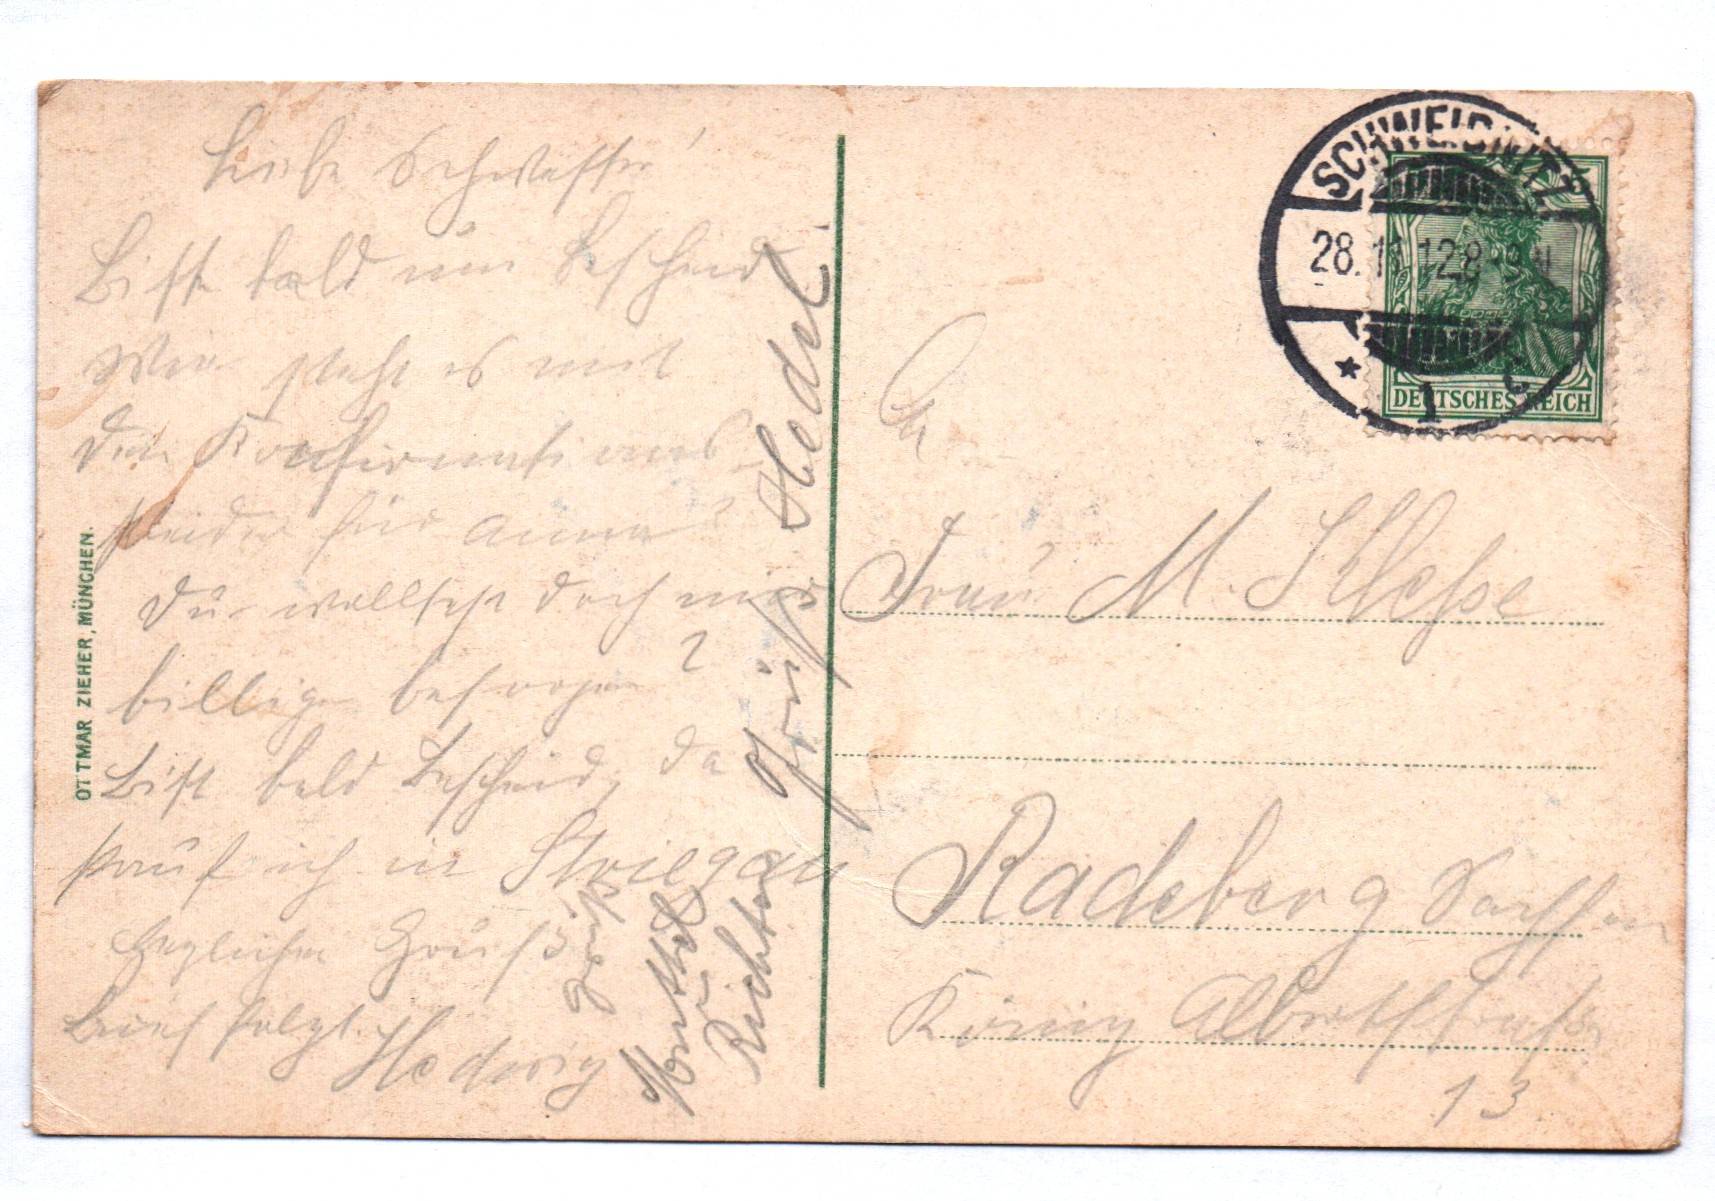 Liebe Schwester!
Bitte bald um Bescheid
Wie steht es mit
den Konfirmations-
kleider für Anna?
Du wolltest doch mir
billiger besorgen?
Bitte bald Bescheid, da
kauf ich in Striegau
Herzlichen Gruß
Brief folgt.
Hedwig
Gruß
Richter
Grüße Hedel.
OTTMAR ZIEHER, MÜNCHEN.
SCHWEIDNITZ
28.11.12.8-9N
* 1 c
DEUTSCHES REICH
An
Frau M. Klesse
Radeberg Sachsen
König Albertstraße
13.